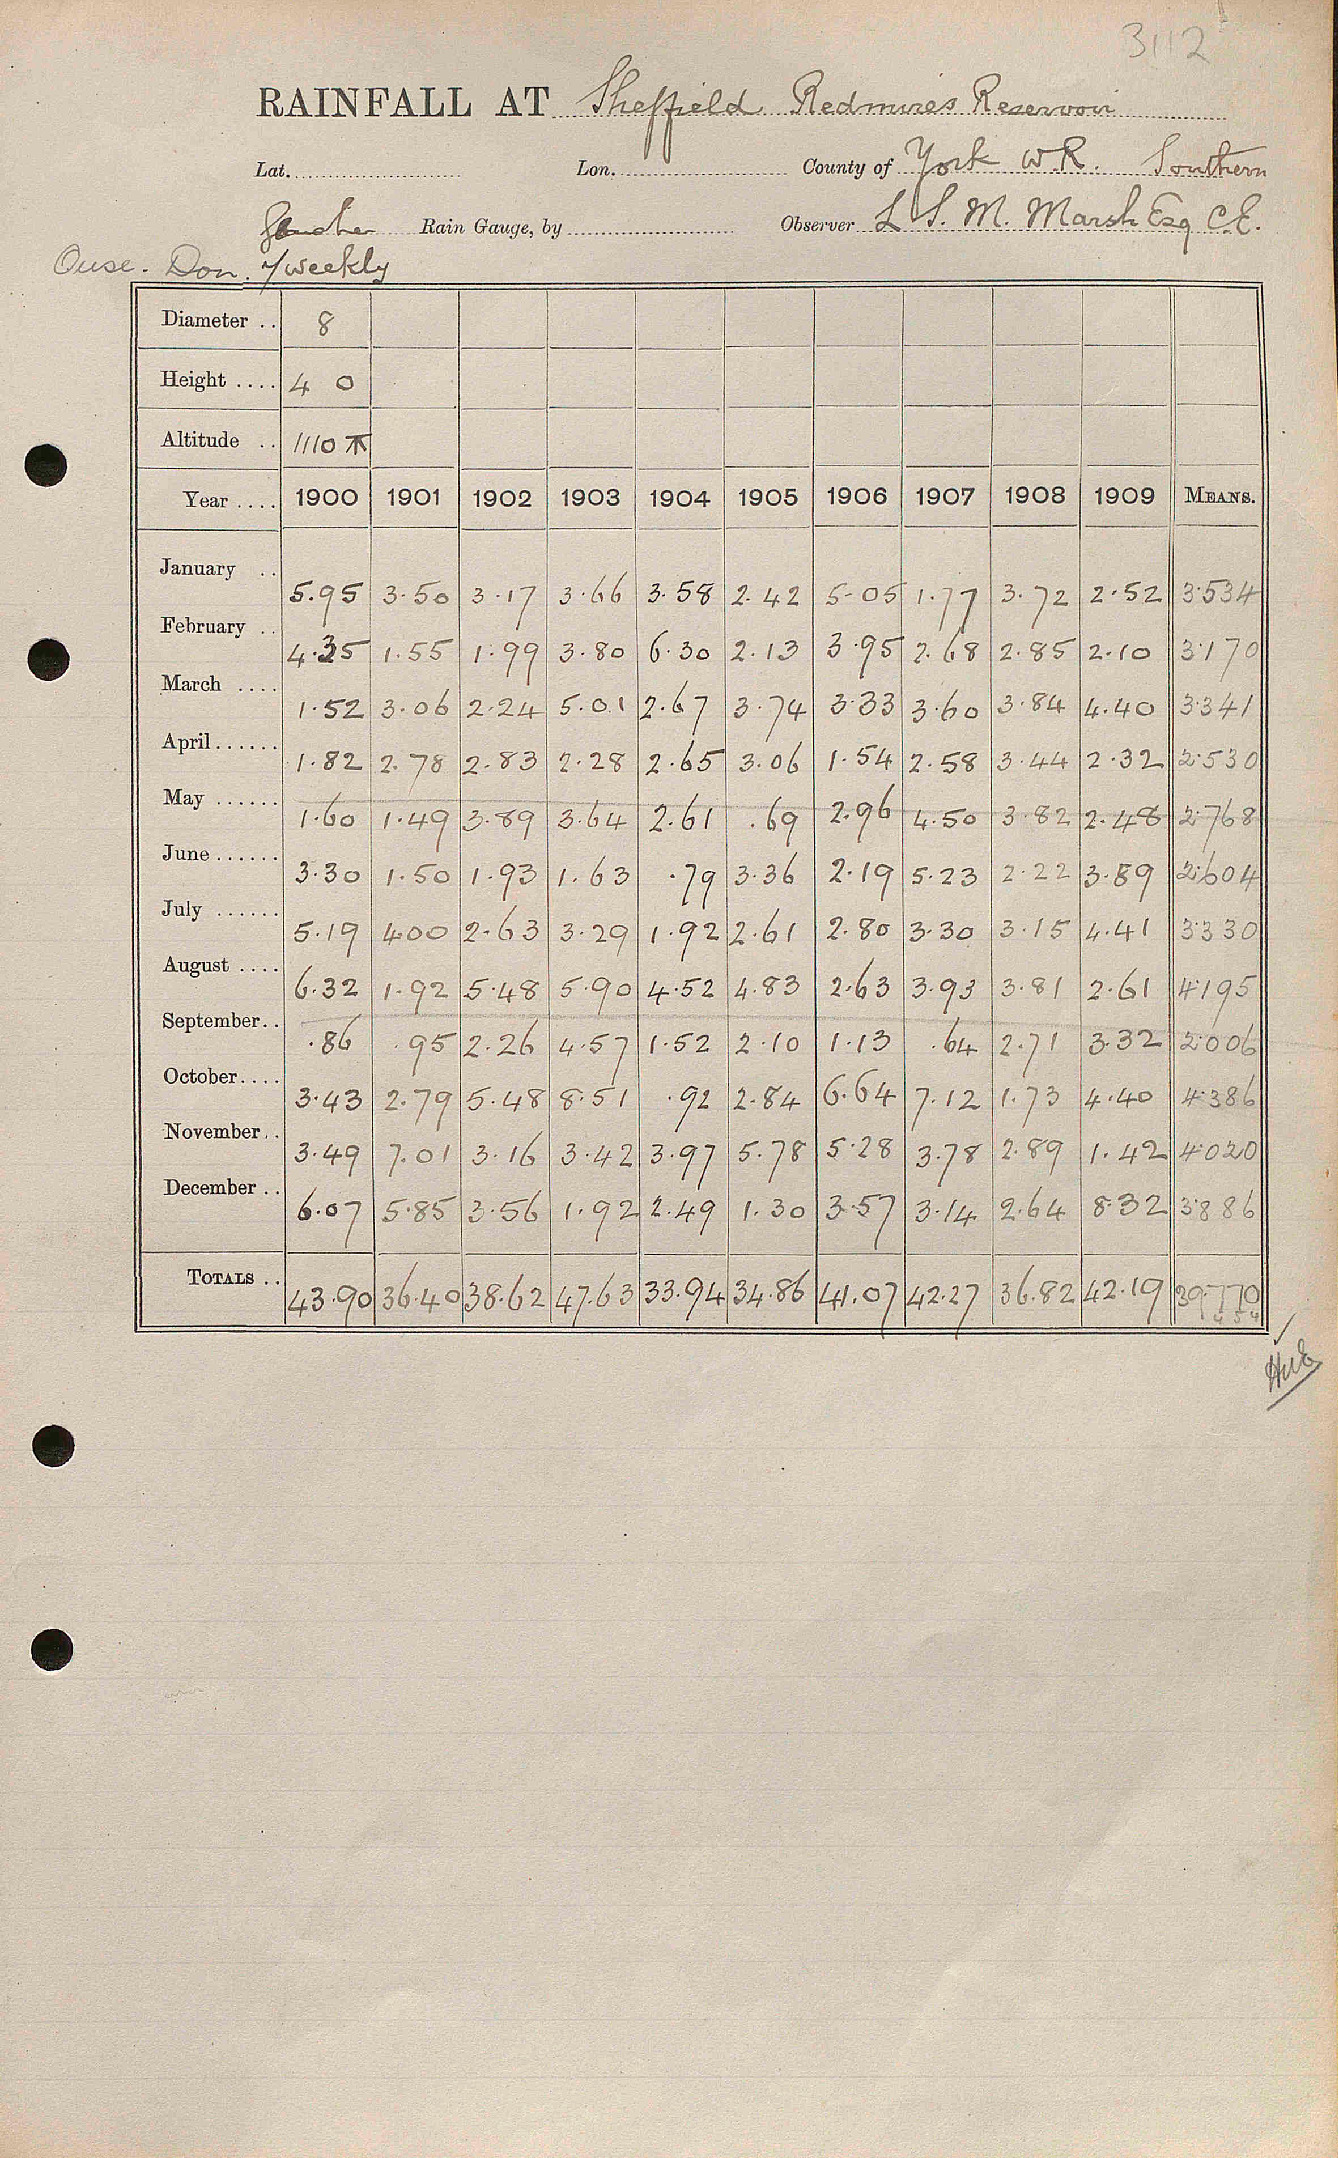 3112
RAINFALL AT Sheffield Redmires Reservoir
Lat. Lon. County of York W.R. Southern
Rain Gauge, by Observer L. S. M. Marsh Esq C.E.
Ouse. Don. /weekly
Diameter .. 8
Height .... 4 0
Altitude .. 1110
Year .... 1900 1901 1902 1903 1904 1905 1906 1907 1908 1909 MEANS.
January .. 5.95 3.50 3.17 3.66 3.58 2.42 5.05 1.77 3.72 2.52 3.534
February .. 4.35 1.55 1.99 3.80 6.30 2.13 3.95 2.68 2.85 2.10 3.170
March .... 1.52 3.06 2.24 5.01 2.67 3.74 3.33 3.60 3.84 4.40 3.341
April...... 1.82 2.78 2.83 2.28 2.65 3.06 1.54 2.58 3.44 2.32 2.530
May ...... 1.60 1.49 3.89 3.64 2.61 .69 2.96 4.50 3.82 2.48 2.768
June...... 3.30 1.50 1.93 1.63 .79 3.36 2.19 5.23 2.22 3.89 2.604
July ...... 5.19 4.00 2.63 3.29 1.92 2.61 2.80 3.30 3.15 4.41 3.330
August .... 6.32 1.92 5.48 5.90 4.52 4.83 2.63 3.93 3.81 2.61 4.195
September.. .86 .95 2.26 4.57 1.52 2.10 1.13 .64 2.71 3.32 2.006
October.... 3.43 2.79 5.48 8.51 .92 2.84 6.64 7.12 1.73 4.40 4.386
November.. 3.49 7.01 3.16 3.42 3.97 5.78 5.28 3.78 2.89 1.42 4.020
December .. 6.07 5.85 3.56 1.92 2.49 1.30 3.57 3.14 2.64 8.32 3.886
TOTALS .. 43.90 36.40 38.62 47.63 33.94 34.86 41.07 42.27 36.82 42.19 39.770